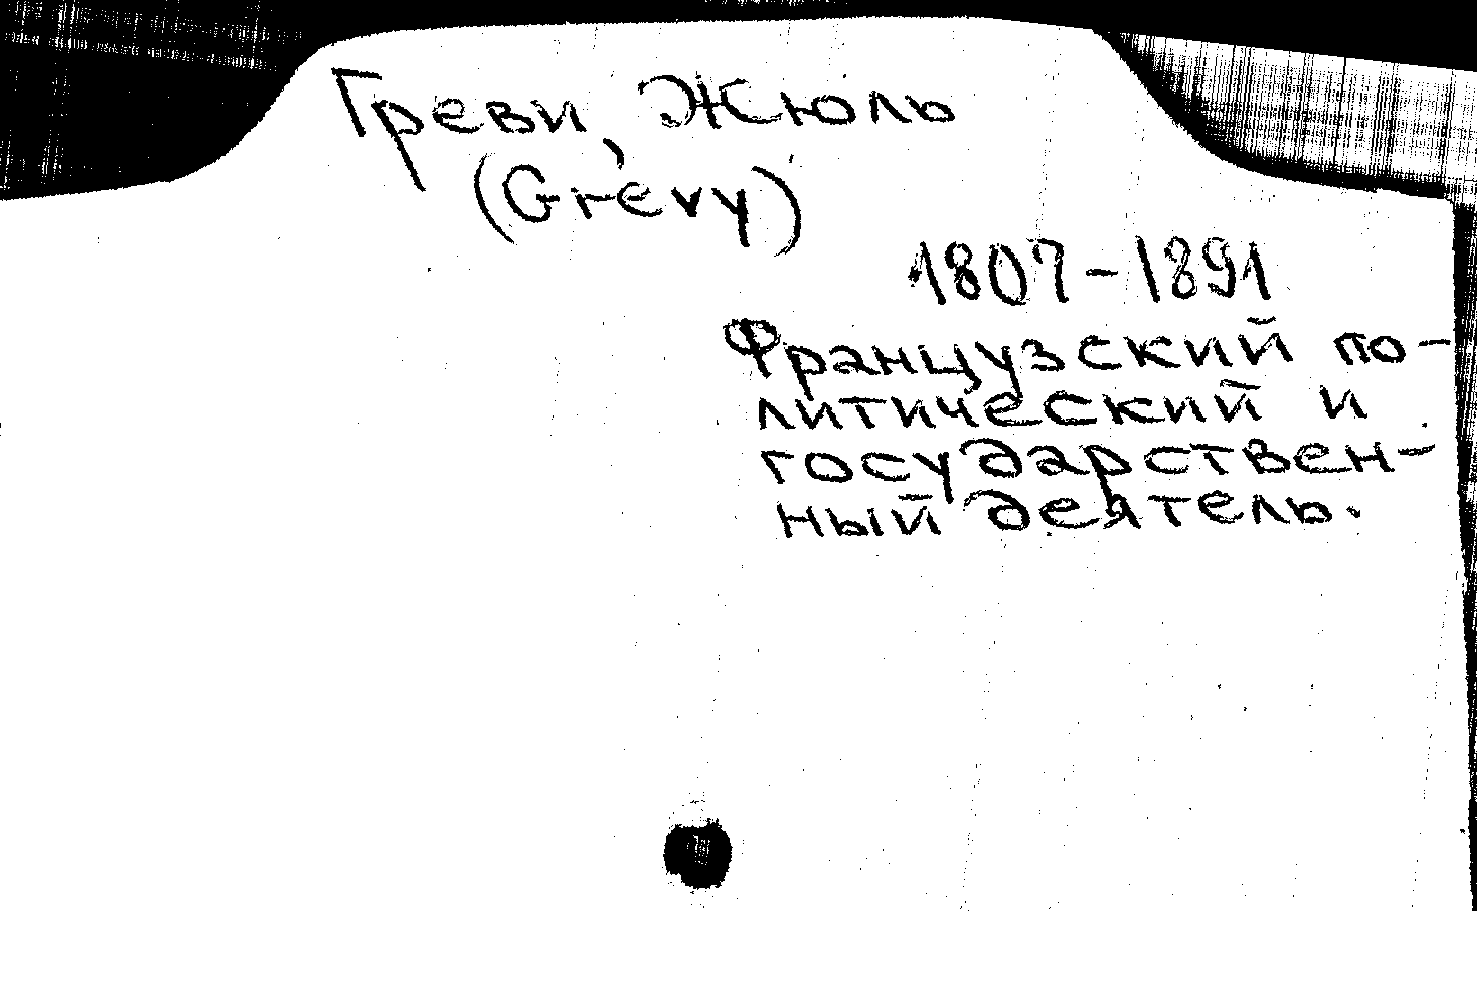 Греви, Жюль
(Grévy)
1807-1891
Французский по-
литический и
государствен-
ный деятель.